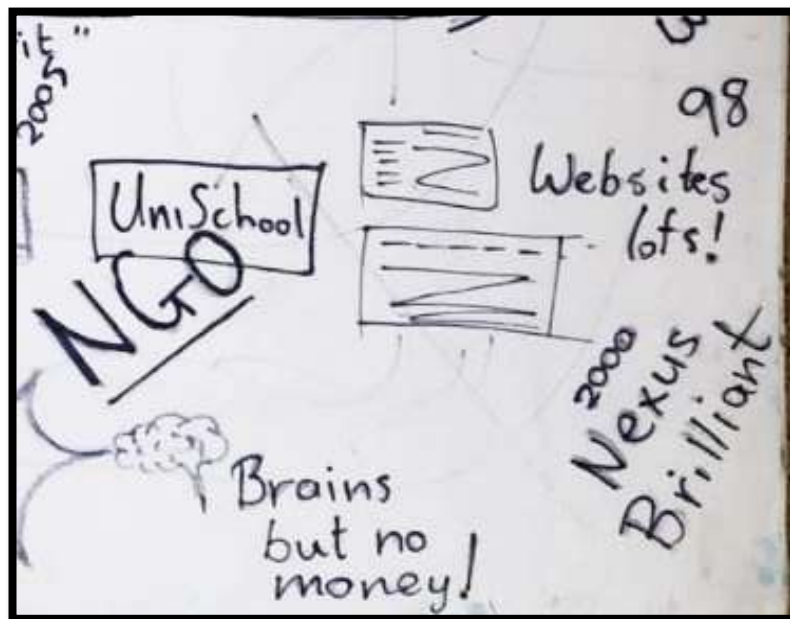 it"
2005
98
UniSchool
NGO
Websites
lots!
2000
Nexus
Brilliant
Brains
but no
money!